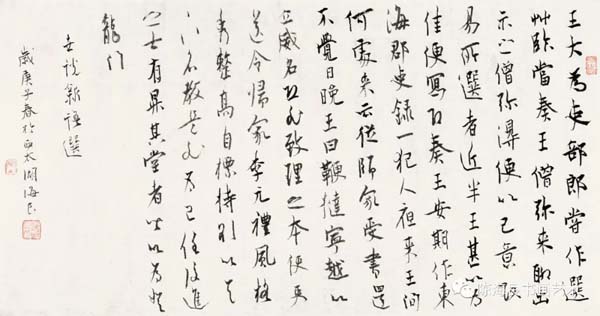 王大為吏部郎嘗作選
艸臨當奏王僧弥來聊出
示之僧弥得便以己意改
易所選者近半王甚以為
佳便寫即奏王安期作東
海郡吏録一犯人夜來王問
何處来云從師家受書還
不覺日晚王曰鞭撻寧越以
立威名恐非致理之本使吏
送令歸家李元禮風格
秀整高自標持欲以天
下名教是非為己任後進
之士有昇其堂者皆以為登
龍門
世說新語選
歲庚子春於西太湖海良
陈海良书画艺术